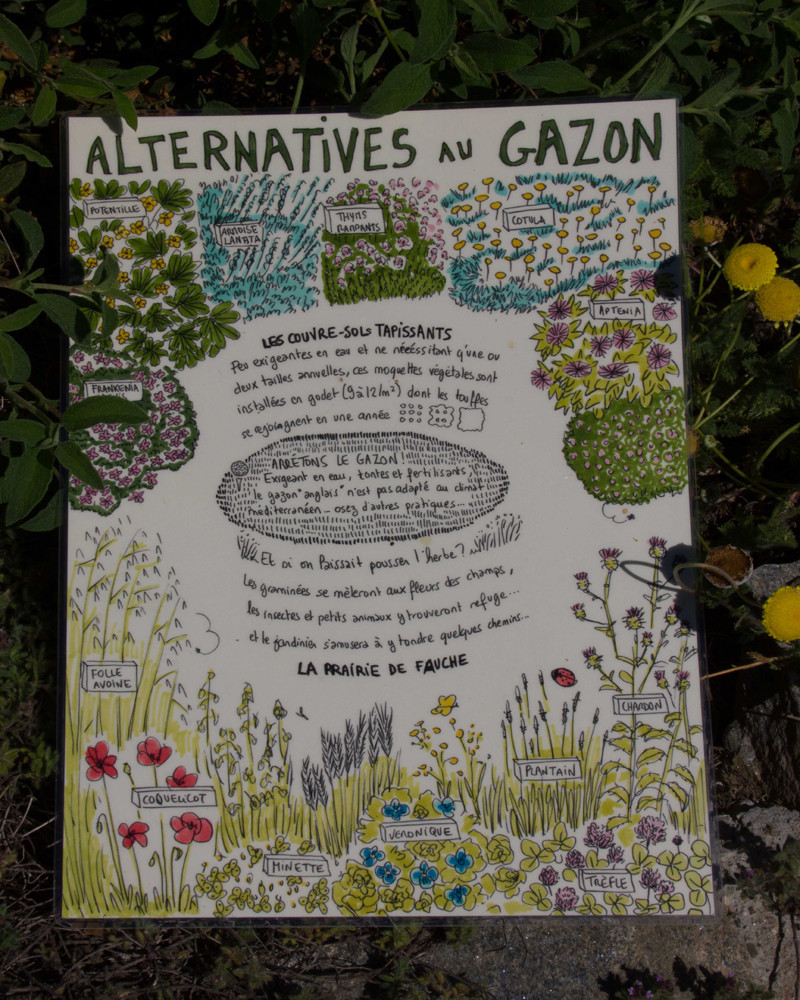 ALTERNATIVES AU GAZON
POTENTILLE
ARMOISE
LANATA
THYMS
RAMPANTS
COTULA
APTENIA
FRANKENIA
LES COUVRE-SOLS TAPISSANTS
Peu exigeantes en eau et ne nécéssitant q'une ou
deux tailles annuelles, ces moquettes végétales sont
installées en godet (9 à 12/m²) dont les touffes
se rejoignent en une année
ARRÊTONS LE GAZON !
Exigeant en eau, tontes et fertilisants,
le gazon "anglais" n'est pas adapté au climat
méditerranéen... osez d'autres pratiques...
...Et si on laissait pousser l'herbe ?
Les graminées se mèleront aux fleurs des champs,
les insectes et petits animaux y trouveront refuge...
et le jardinier s'amusera à y tondre quelques chemins...
LA PRAIRIE DE FAUCHE
FOLLE
AVOINE
CHARDON
PLANTAIN
COQUELICOT
VERONIQUE
MINETTE
TRÈFLE